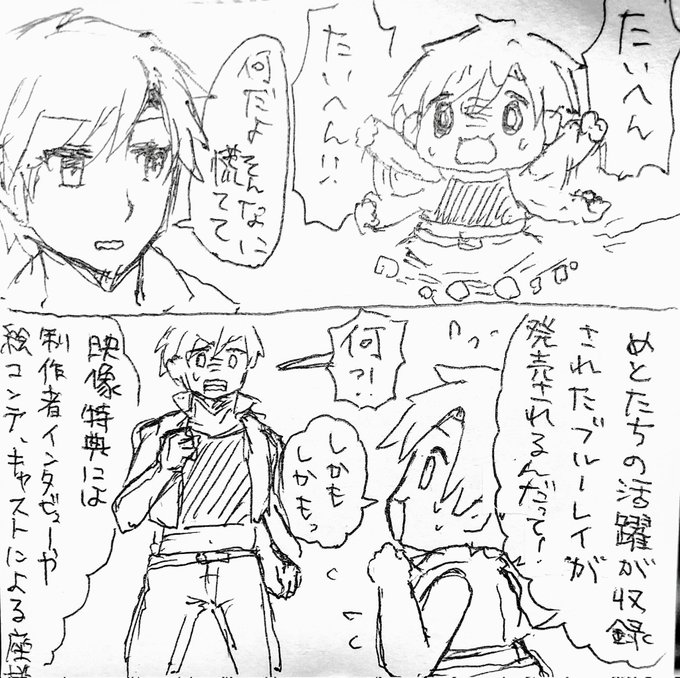 たいへん
たいへん!!
何だよそんなに
慌てて
めとたちの活躍が収録
されたブルーレイが
発売されるんだって!
何?!
しかも
しかもっ
映像特典には
制作者インタビューや
絵コンテ、キャストによる座